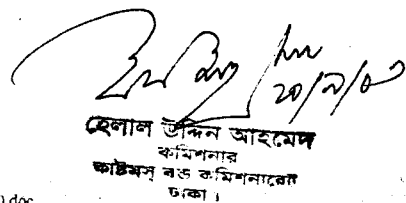 ২০/৯/০
হেলাল উদ্দিন আহমেদ
কমিশনার
কাষ্টমস্ বন্ড কমিশনারেট
ঢাকা।
).doc